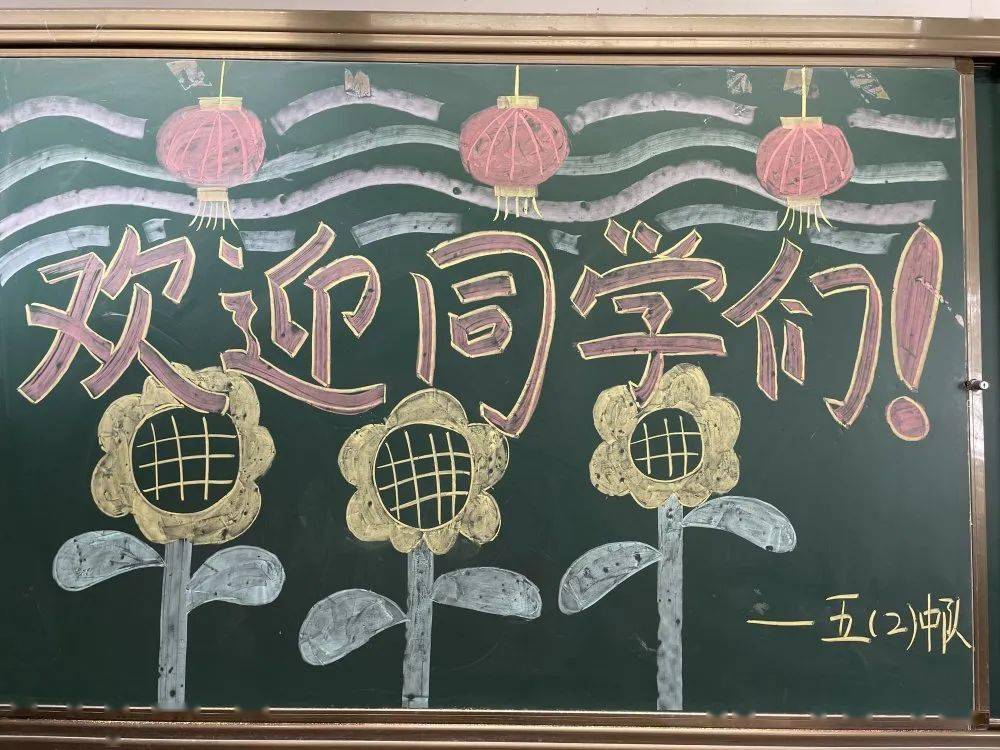 欢迎同学们!
——五(2)中队